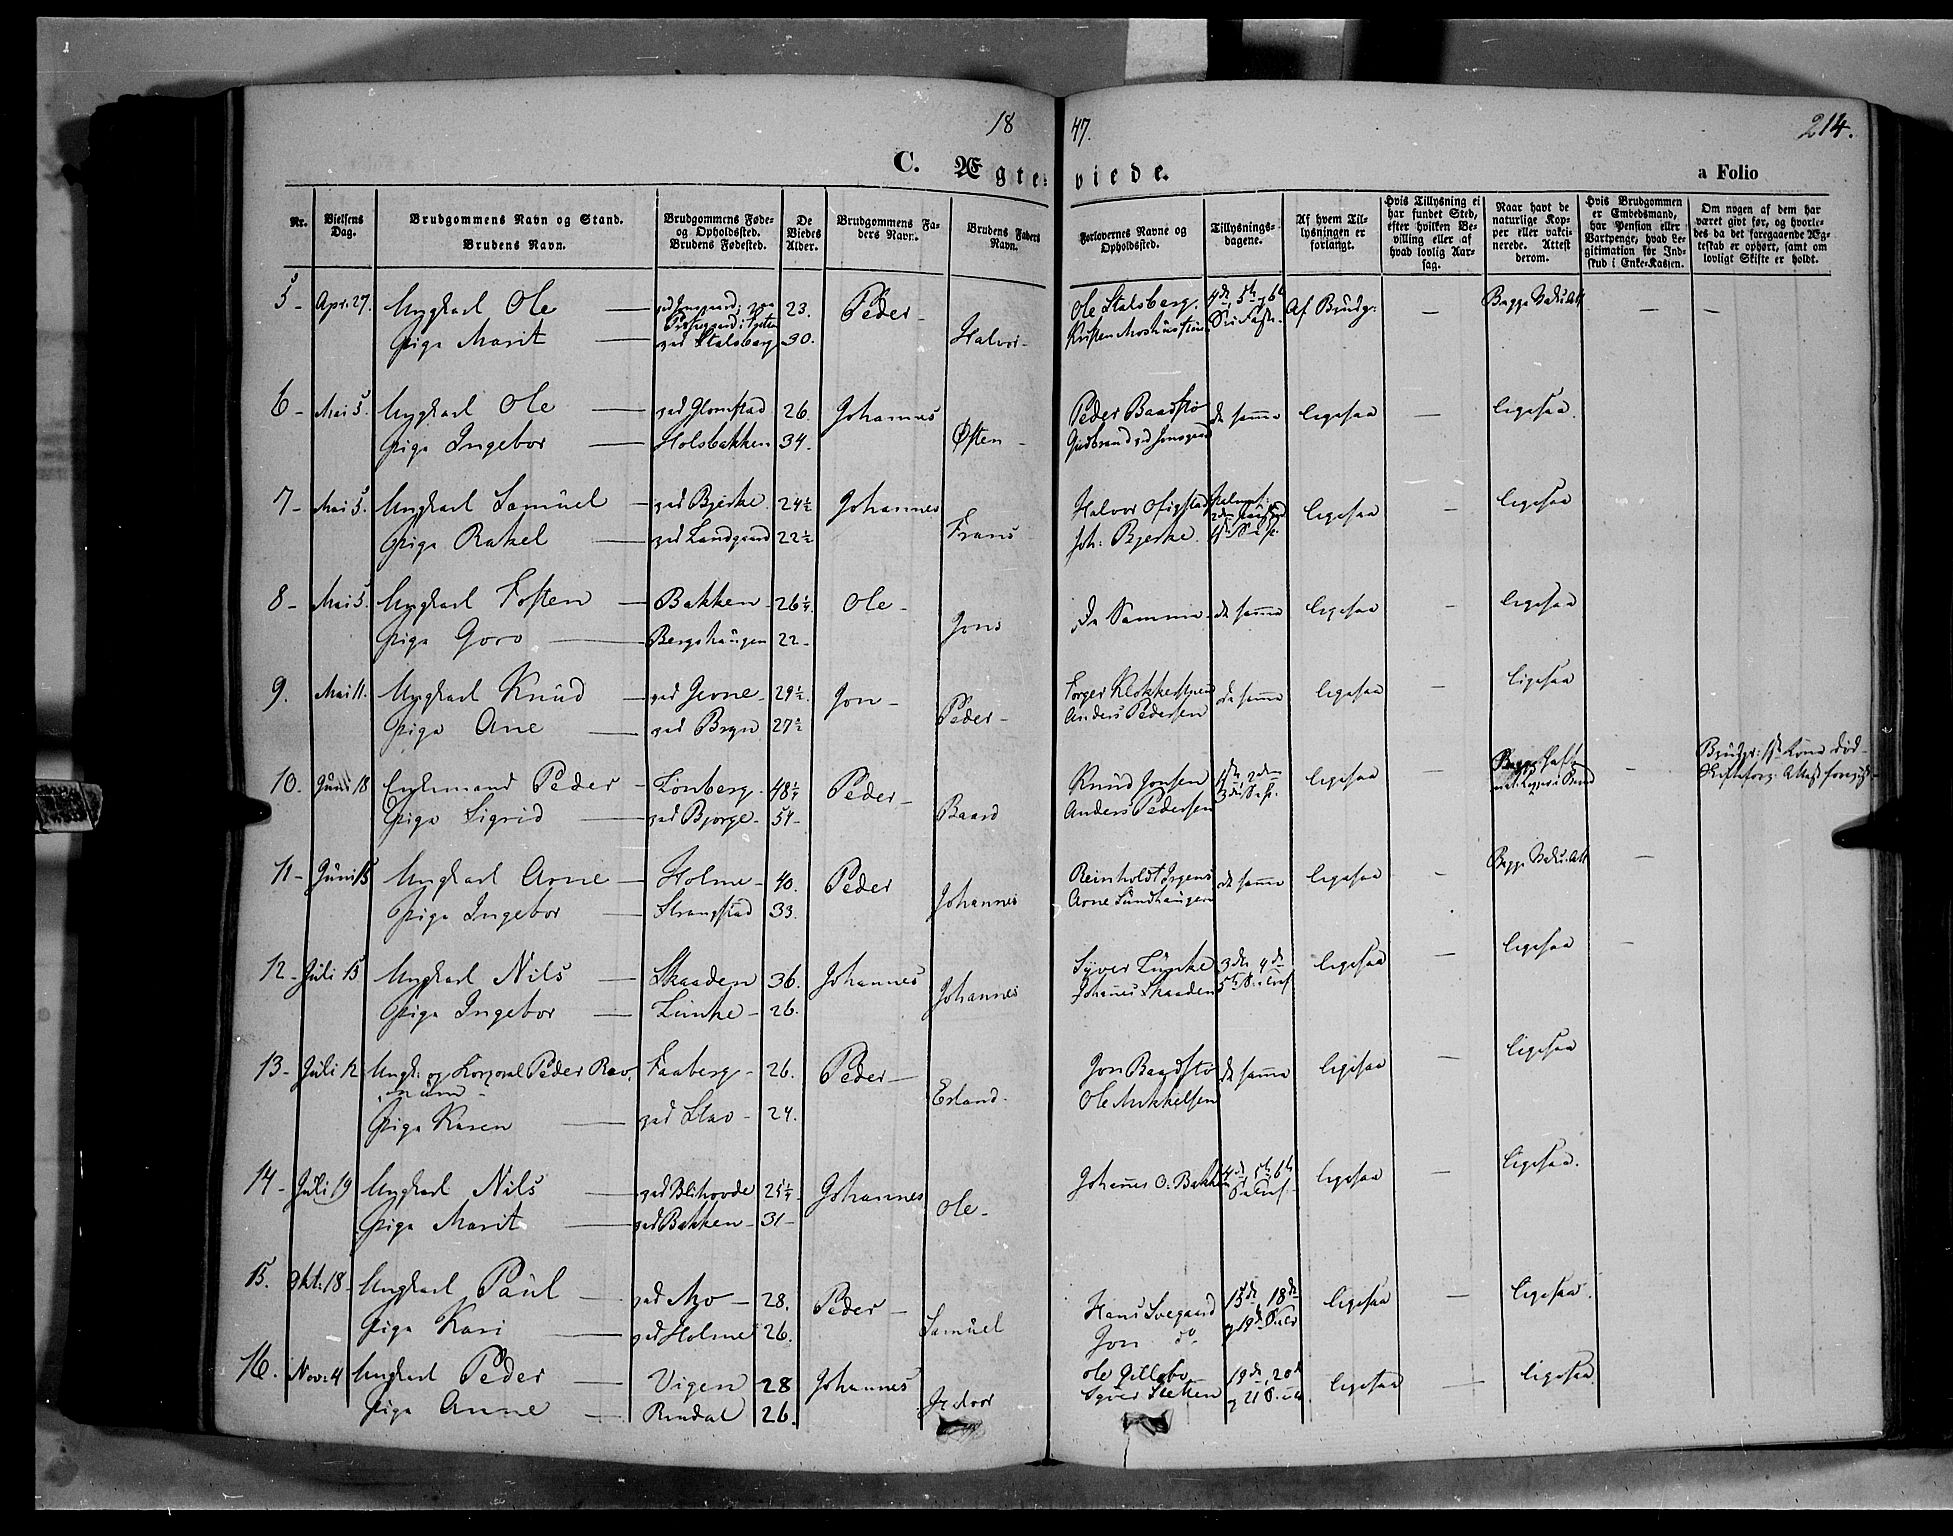 18 47. 214.
C. Ægteviede. a Folio
Nr. Vielsens Dag. Brudgommens Navn og Stand. Brudens Navn. Brudgommens Føde- og Opholdssted. Brudens Fødested. De Viedes Alder. Brudgommens Faders Navn. Brudens Faders Navn. Forlovernes Navne og Opholdssted. Tillysningsdagene. Af hvem Tillysningen er forlangt. Hvis Tillysning ei har fundet Sted, efter hvilken Bevilling eller af hvad lovlig Aarsag. Naar havt de naturlige Kopper eller vaktinerede. Attest derom. Hvis Brudgommen er Embedsmand, har Pension eller Vartpenge, hvad Legitimation for Indskud i Enke-Kassen. Om nogen af dem har været givt før, og hvorledes da det foregaaende Ægteskab er ophørt, samt om lovligt Skifte er holdt.
5 - Apr. 27. Ungkarl Ole — 23. Peder - Ole Stalsberg. 4de, 5te, 6te Af Brudg. Begge Vakc. Att. — —
Pige Marit — gad Stalsberg 30. Halvor - Kristen Moshusstuen
6 - Mai 5. Ungkarl Ole — gad Glomstad 26. Johannes Peder Baadstø de samme ligesaa — ligesaa.
Pige Ingebor — Holsbakken 34. Østen - Gudbrand
7 - Mai 5. Ungkarl Samuel - gad Bjerke. 24½ Johannes Halvor ligesaa — ligesaa
Pige Rakel — gad Landgaard 22½ Frans Joh. Bjerke.
8 - Mai 5. Ungkarl Tosten — Bakken - 26¼. Ole - De Samme - de samme ligesaa — ligesaa
Pige Goro — Bergshaugen 22 - Jens
9. Mai 11. Ungkarl Knud — gad Jevne - 29½. Jon - Torger Klokkerstuen de samme ligesaa — ligesaa
Pige Ane — gad Bryn 27½ Peder - Anders Pedersen
10. Juni 18 Enkemand Peder - Lønberg - 48¼ Peder - Knud Jonsen 1ste, 2den ligesaa — —
Pige Sigrid — gad Bjørge - 54 - Baard Anders Pedersen
11 - Juni 15 Ungkarl Arne — Holme - 40. Peder Reinholdt de samme ligesaa - Begge Vakc. Att. —
Pige Ingebor — Strangstad 33. Johannes Arne Sundhaugen
12 - Juli 15 Ungkarl Nils — Skaaden 36. Johannes Syver Lunke 3die 4de ligesaa — ligesaa —
Pige Ingebor — Lunke - 26. Johannes Johannes Skaaden
13 - Juli 12 Ungk. og Korporal Peder Faaberg - 26. Peder — Jon Baadstø de samme ligesaa — ligesaa
Pige Karen — gad Stav - 24. Erland - Ole Mikkelsen
14 - Juli 19 Ungkarl Nils — gad Blihovde 25¼ Johannes Johannes O. Bakken 4de, 5te, 6te ligesaa — ligesaa.
Pige Marit — gad Bakken - 31 - Ole -
15. Okt. 18 - Ungkarl Paul — gad Mo — 28. Peder — Hans Svegaard 15de, 18de ligesaa — ligesaa.
Pige Kari — gad Holme 26. Samuel Jon do
16. Nov. 4 Ungkarl Peder — Vigen 28 Johannes Ole Gillebo 19de, 20de ligesaa — ligesaa.
Pige Anne — Rindal 26. Syver Sletten